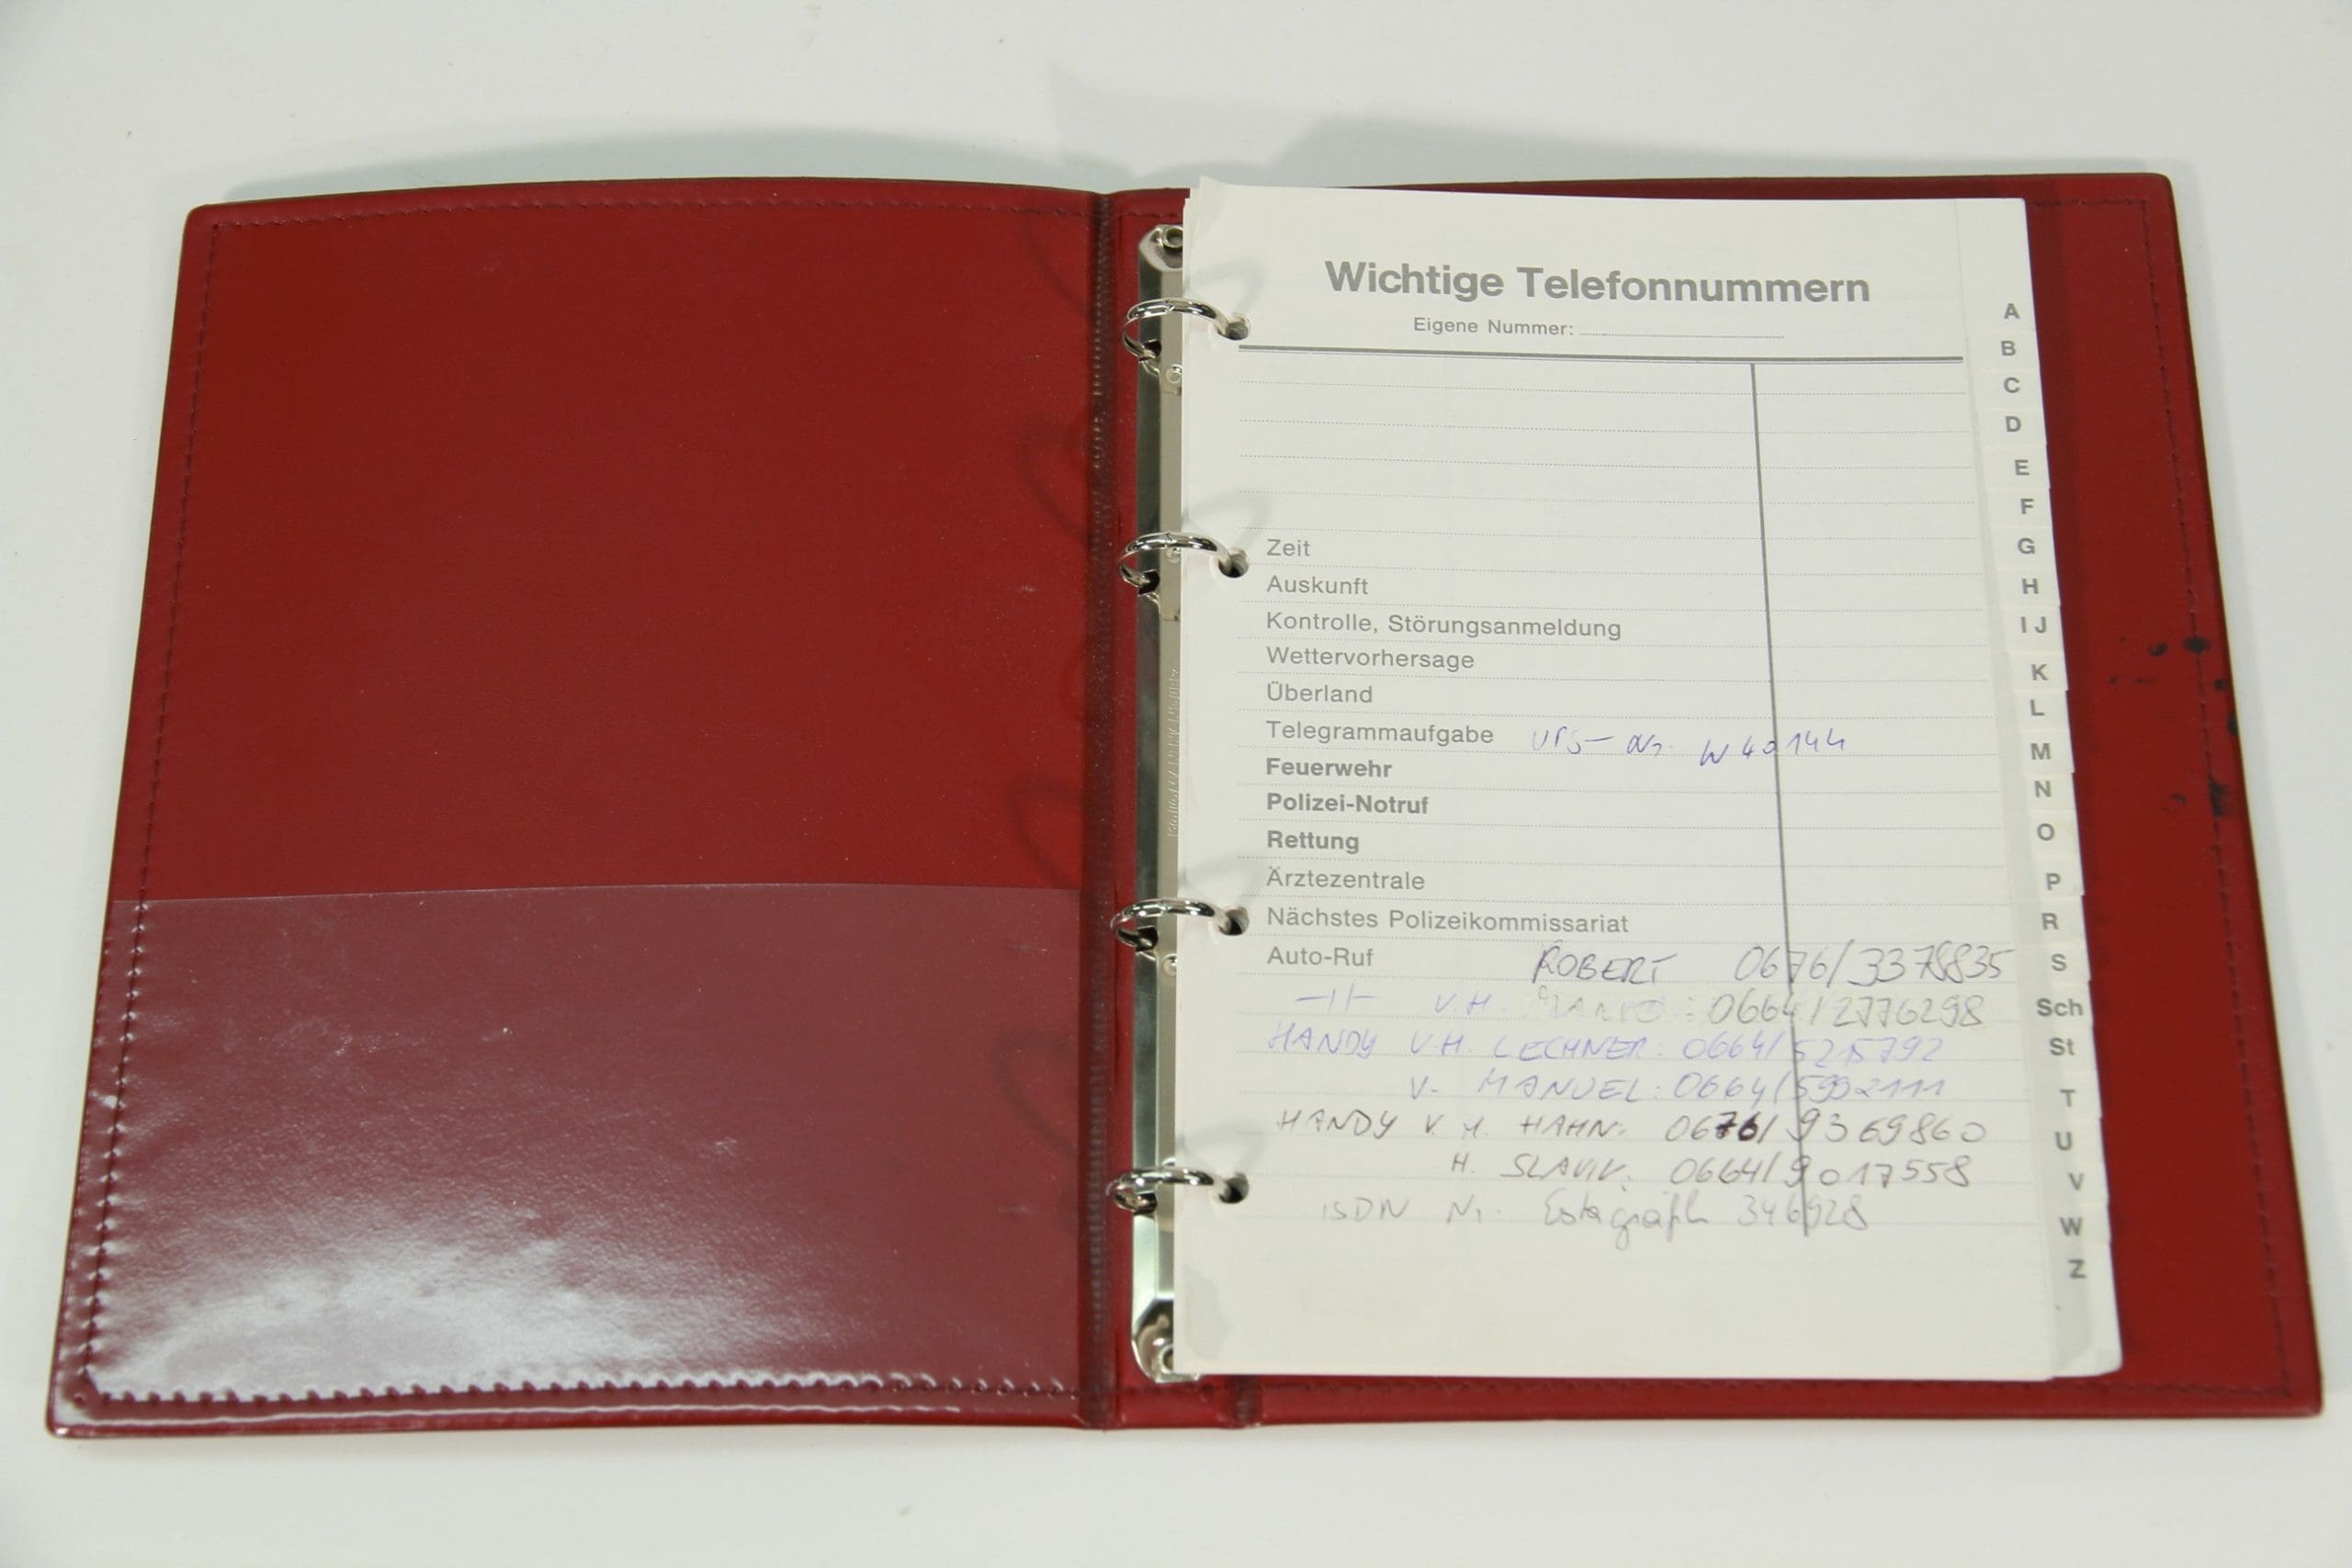 Wichtige Telefonnummern
Eigene Nummer:
Zeit
Auskunft
Kontrolle, Störungsanmeldung
Wettervorhersage
Überland
Telegrammaufgabe W 40144
Feuerwehr
Polizei-Notruf
Rettung
Ärztezentrale
Nächstes Polizeikommissariat
Auto-Ruf ROBERT 0676/3378835
-11- V.H. 0664/2776298
HANDY V.H. LECHNER: 0664/5215792
V. MANUEL: 0664/5992111
HANDY V. H. HAHN: 0676/9369860
H. SLAVIK: 0664/9017558
ISDN Nr. 346928
A
B
C
D
E
F
G
H
I J
K
L
M
N
O
P
R
S
Sch
St
T
U
V
W
Z